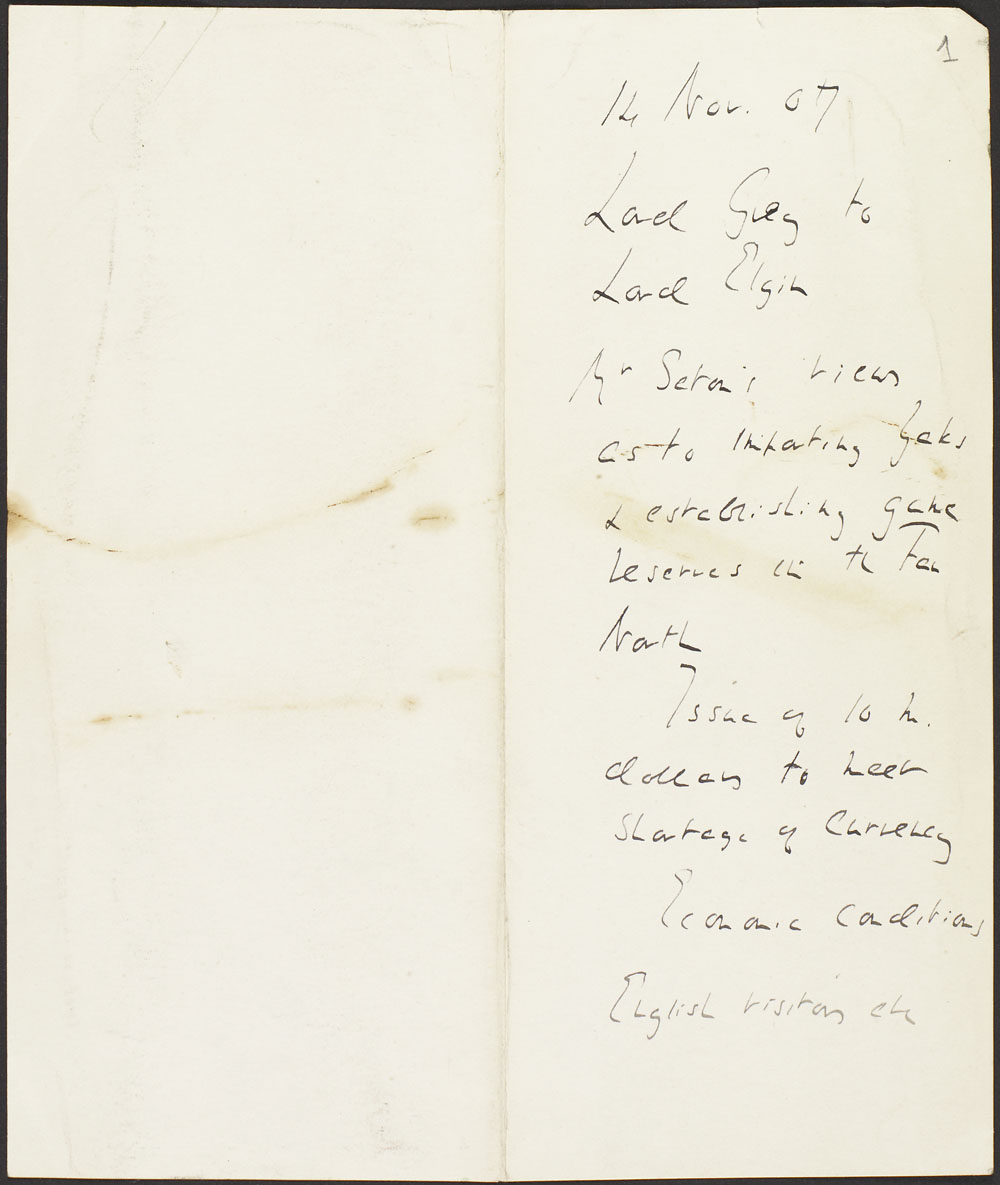 1
14 Nov. 07
Lord Grey to
Lord Elgin
Mr Seton's views
as to importing Yaks
& establishing game
reserves in the Far
North
Issue of 10 m.
dollars to meet
shortage of currency
Economic conditions
English visitors etc